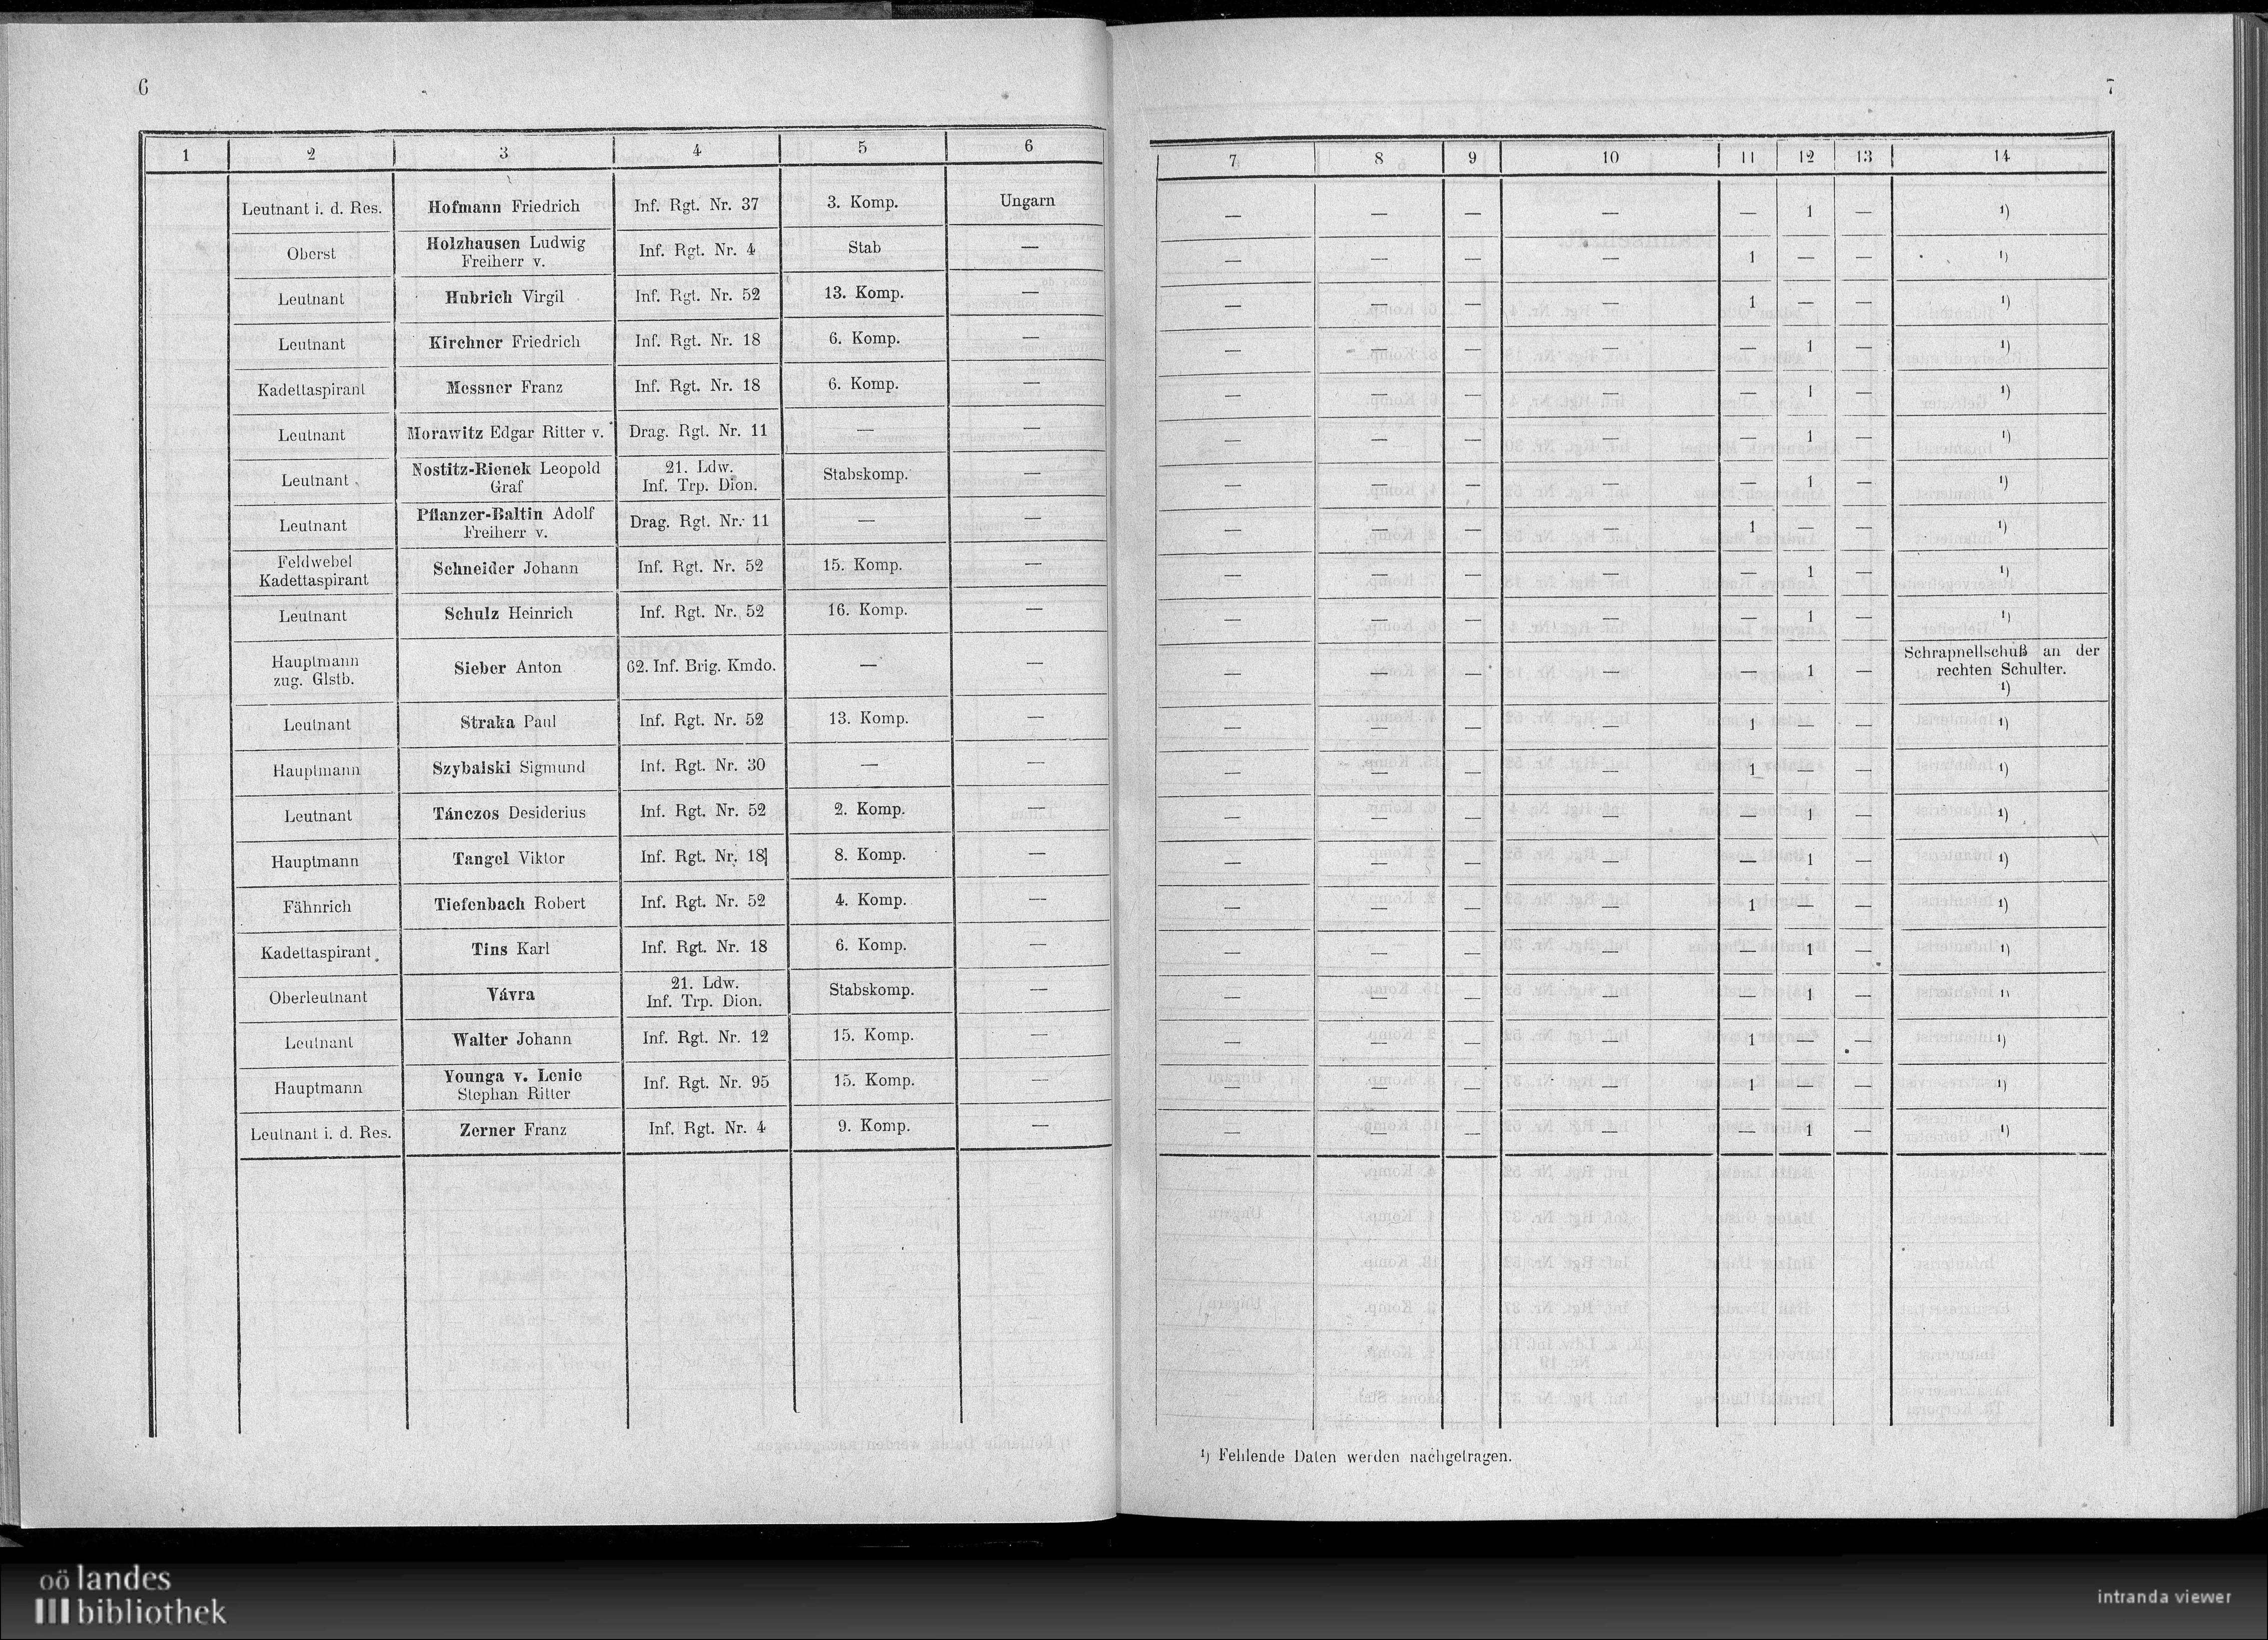 6
1 2 3 4 5 6
Leutnant i. d. Res. Hofmann Friedrich Inf. Rgt. Nr. 37 3. Komp. Ungarn
Oberst Holzhausen Ludwig Freiherr v. Inf. Rgt. Nr. 4 Stab —
Leutnant Hubrich Virgil Inf. Rgt. Nr. 52 13. Komp. —
Leutnant Kirchner Friedrich Inf. Rgt. Nr. 18 6. Komp. —
Kadettaspirant Messner Franz Inf. Rgt. Nr. 18 6. Komp. —
Leutnant Morawitz Edgar Ritter v. Drag. Rgt. Nr. 11 — —
Leutnant Nostitz-Rienek Leopold Graf 21. Ldw. Inf. Trp. Dion. Stabskomp. —
Leutnant Pflanzer-Baltin Adolf Freiherr v. Drag. Rgt. Nr. 11 — —
Feldwebel Kadettaspirant Schneider Johann Inf. Rgt. Nr. 52 15. Komp. —
Leutnant Schulz Heinrich Inf. Rgt. Nr. 52 16. Komp. —
Hauptmann zug. Glstb. Sieber Anton 62. Inf. Brig. Kmdo. — —
Leutnant Straka Paul Inf. Rgt. Nr. 52 13. Komp. —
Hauptmann Szybalski Sigmund Inf. Rgt. Nr. 30 — —
Leutnant Tánczos Desiderius Inf. Rgt. Nr. 52 2. Komp. —
Hauptmann Tangel Viktor Inf. Rgt. Nr. 18 8. Komp. —
Fähnrich Tiefenbach Robert Inf. Rgt. Nr. 52 4. Komp. —
Kadettaspirant Tins Karl Inf. Rgt. Nr. 18 6. Komp. —
Oberleutnant Vávra 21. Ldw. Inf. Trp. Dion. Stabskomp. —
Leutnant Walter Johann Inf. Rgt. Nr. 12 15. Komp. —
Hauptmann Younga v. Lenie Stephan Ritter Inf. Rgt. Nr. 95 15. Komp. —
Leutnant i. d. Res. Zerner Franz Inf. Rgt. Nr. 4 9. Komp. —
7
7 8 9 10 11 12 13 14
— — — — — 1 — ¹)
— — — — 1 — — ¹)
— — — — 1 — — ¹)
— — — — — 1 — ¹)
— — — — — 1 — ¹)
— — — — — 1 — ¹)
— — — — — 1 — ¹)
— — — — 1 — — ¹)
— — — — — 1 — ¹)
— — — — — 1 — ¹)
— — — — — 1 — Schrapnellschuß an der
rechten Schulter.
¹)
— — — — 1 — — ¹)
— — — — 1 — — ¹)
— — — — — 1 — ¹)
— — — — — 1 — ¹)
— — — — 1 — — ¹)
— — — — — 1 — ¹)
— — — — — 1 — ¹)
— — — — 1 — — ¹)
— — — — 1 — — ¹)
— — — — — 1 — ¹)
¹) Fehlende Daten werden nachgetragen.
oö landes
bibliothek
intranda viewer